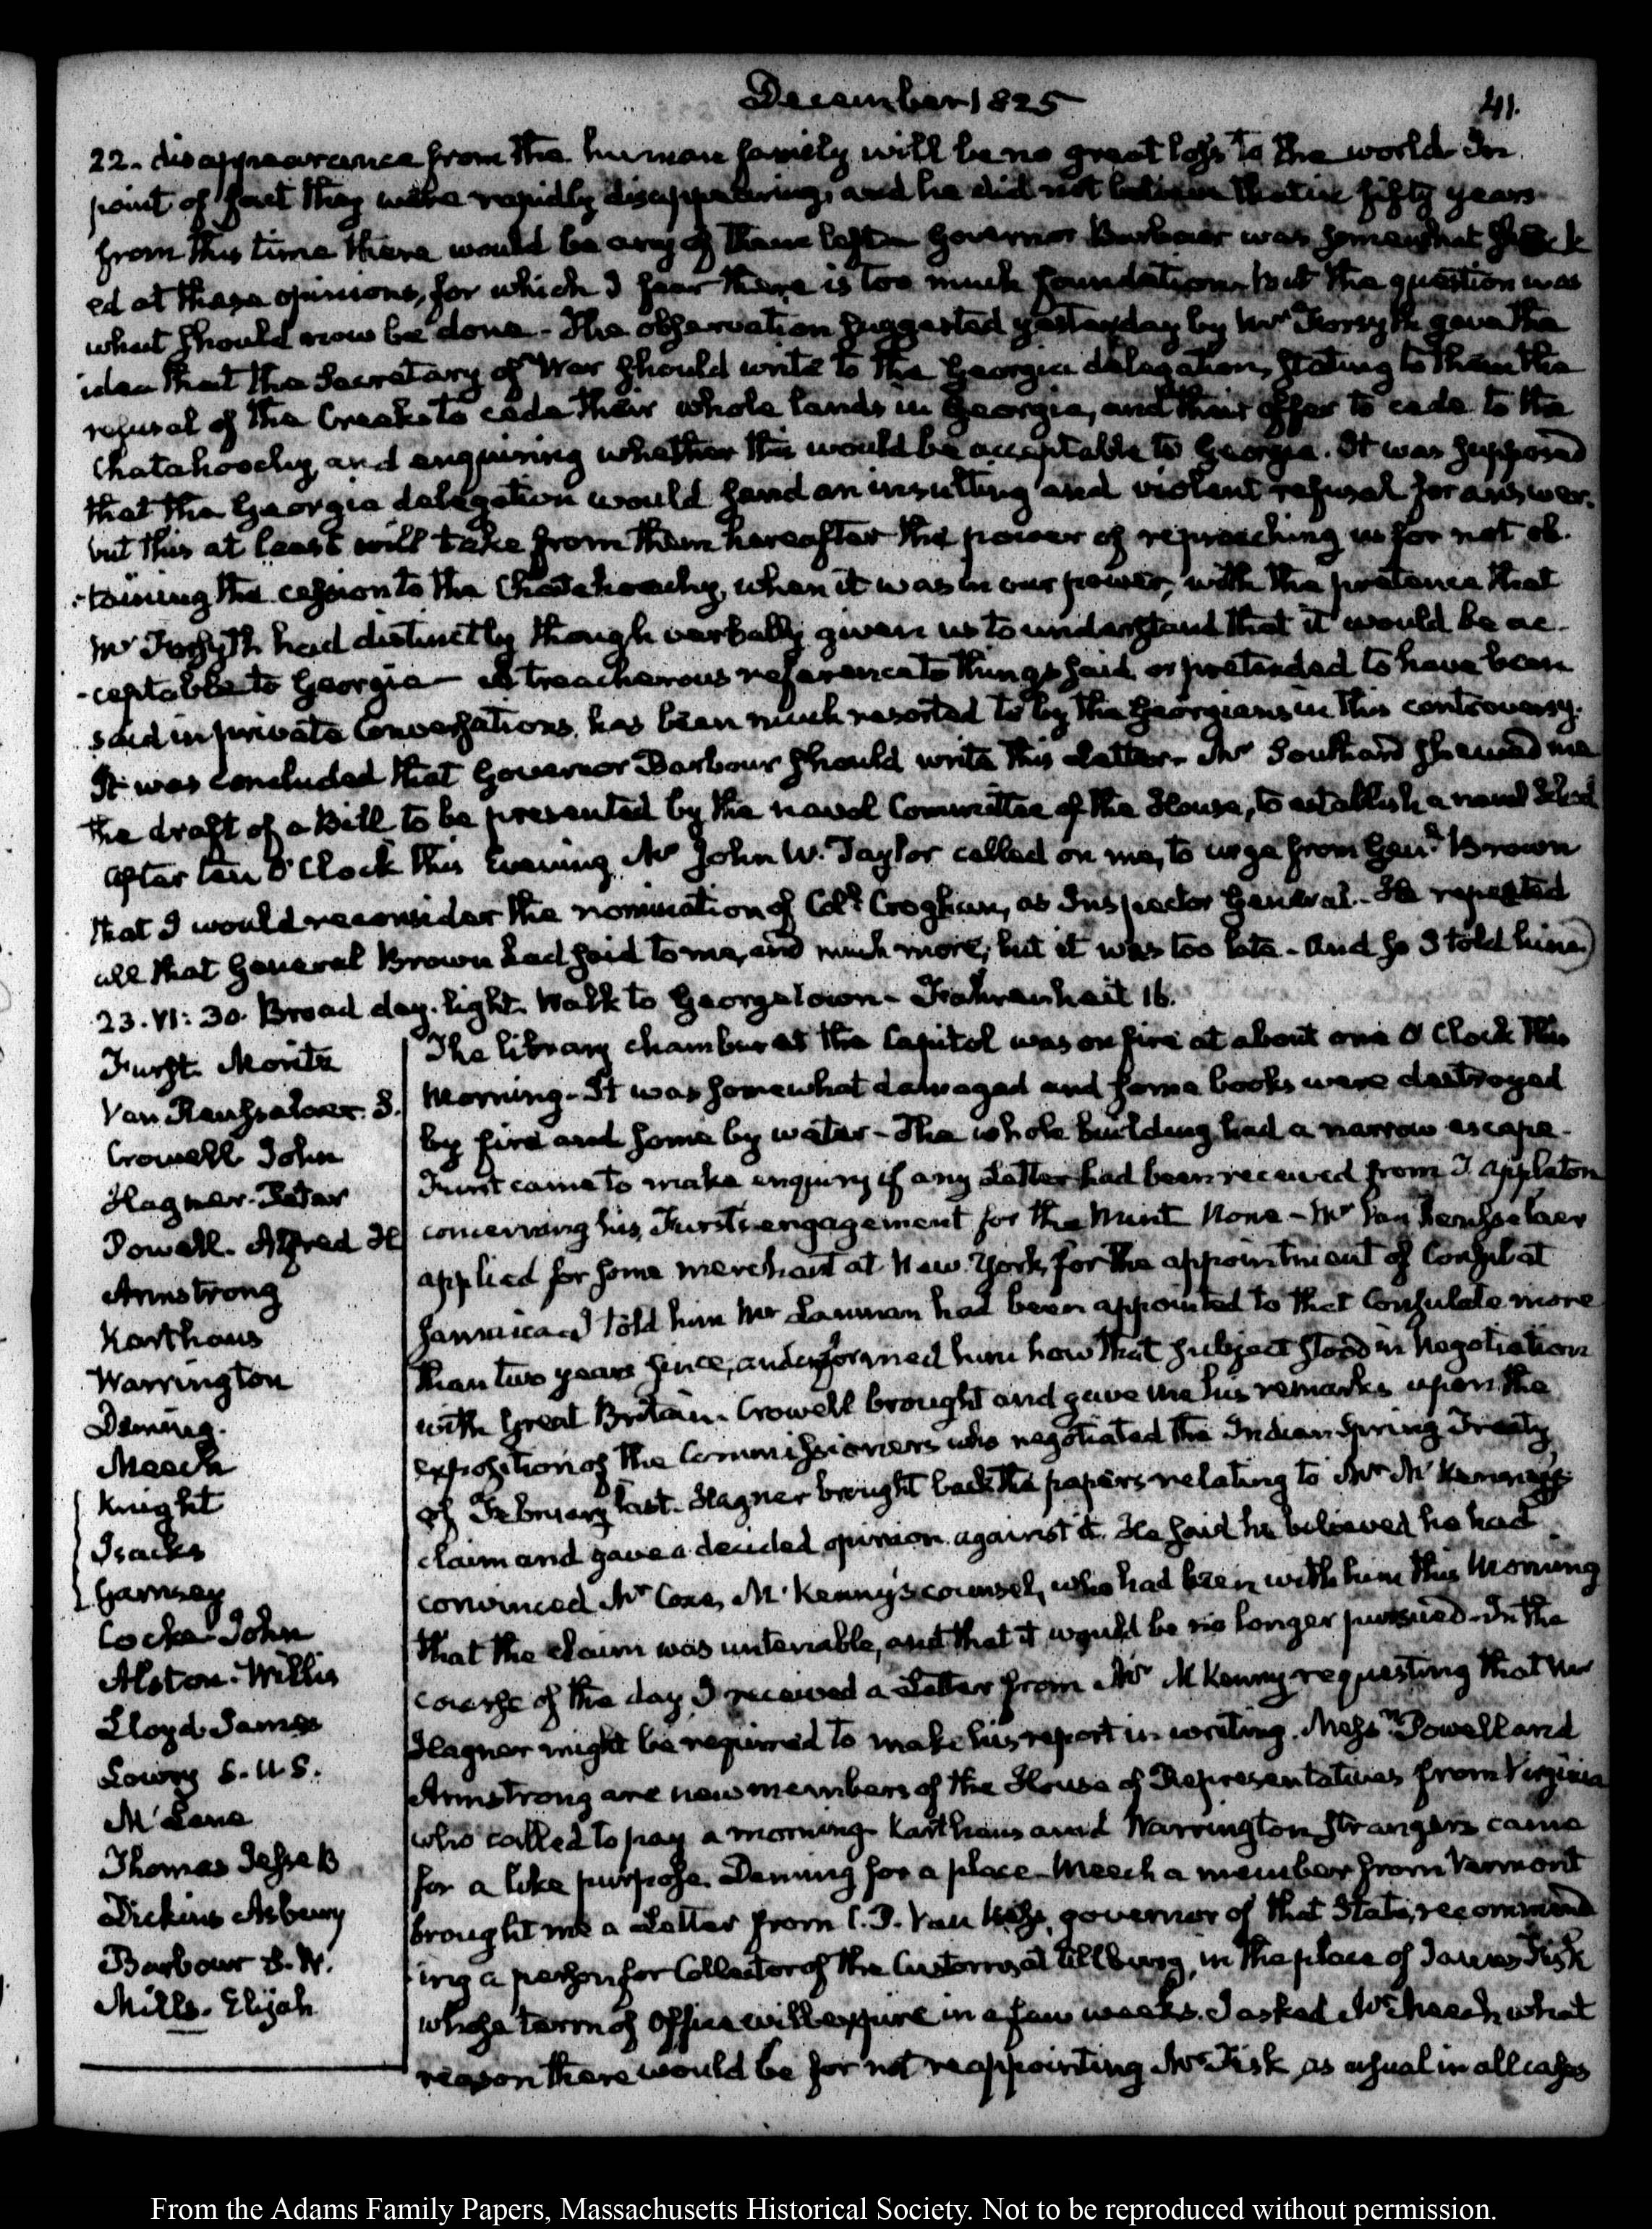 December 1825
41.
22. disappearance from the human family will be no great loss to the world. In
point of fact they were rapidly disappearing, and he did not believe that in fifty years
from this time there would be any of them left. Governor Barbour was somewhat shock
ed at these opinions, for which I fear there is too much foundation. But the question was
what should now be done. The observation suggested yesterday by Mr Forsyth gave the
idea that the Secretary of War should write to the Georgia delegation, stating to them the
refusal of the Creeks to cede their whole lands in Georgia, and their offer to cede to the
Chatahoochy, and enquiring whether this would be acceptable to Georgia. It was supposed
that the Georgia delegation would send an insulting and violent refusal for answer.
but this at least will take from them hereafter the power of reproaching us for not ob-
-taining the cession to the Chatahoochy, when it was in our power, with the pretence that
Mr Forsyth had distinctly though verbally given us to understand that it would be ac-
-ceptable to Georgia— A treacherous reference to things said or pretended to have been
said in private Conversations, has been much resorted to by the Georgians in this controversy.
It was concluded that Governor Barbour should write this Letter. Mr Southard shewed me
the draft of a Bill to be presented by the naval Committee of the House, to establish a naval School
After ten O'Clock this Evening Mr John W. Taylor called on me, to urge from Genl. Brown
that I would reconsider the nomination of Coll. Croghan, as Inspector General. He repeated
all that General Brown had said to me, and much more; but it was too late. And so I told him
23. VI: 30. Broad day-light. Walk to Georgetown. Fahrenheit 16.
Furst. Moritz
Van Rensselaer. S.
Crowell John
Hagner. Peter
Powell. Alfred H
Armstrong
Karthaus
Warrington
Deming.
Meech
Knight
Isacks
Garnsey
Cocke John
Alston. Willis
Lloyd James
Lowry S.U.S.
McLane
Thomas Jesse B
Dickins Asbury
Barbour S.W.
Mills. Elijah
The library chamber at the Capitol was on fire at about one O'Clock this
Morning. It was somewhat damaged and some books were destroyed
by fire and some by water. The whole building had a narrow escape.
Furst came to make enquiry if any Letter had been received from T. Appleton
concerning his, Furst's engagement for the Mint. None. Mr Van Rensselaer
applied for some merchant at New-York for the appointment of Consul at
Jamaica. I told him Mr Lanman had been appointed to that Consulate more
than two years since, and informed him how that subject stood in Negotiation
with Great Britain. Crowell brought and gave me his remarks upon the
exposition of the Commissioners who negotiated the Indian Spring Treaty
of February last. Hagner brought back the papers relating to Mr McKenney's
claim and gave a decided opinion against it. He said he believed he had
convinced Mr Coxe, McKenny's counsel, who had been with him this Morning
that the claim was untenable, and that it would be no longer pursued. In the
course of the day I received a Letter from Mr McKenny requesting that Mr
Hagner might be required to make his report in writing. Messrs. Powell and
Armstrong are new members of the House of Representatives from Virginia
who called to pay a morning. Karthaus and Warrington Strangers came
for a like purpose. Deming for a place. Meech a member from Vermont
brought me a Letter from C. P. Van Ness, governor of that State, recommend
ing a person for Collector of the Customs at Allburg, in the place of James Fisk
whose term of Office will expire in a few weeks. I asked Mr Meech what
reason there would be for not reappointing Mr Fisk, as usual in all cases
From the Adams Family Papers, Massachusetts Historical Society. Not to be reproduced without permission.